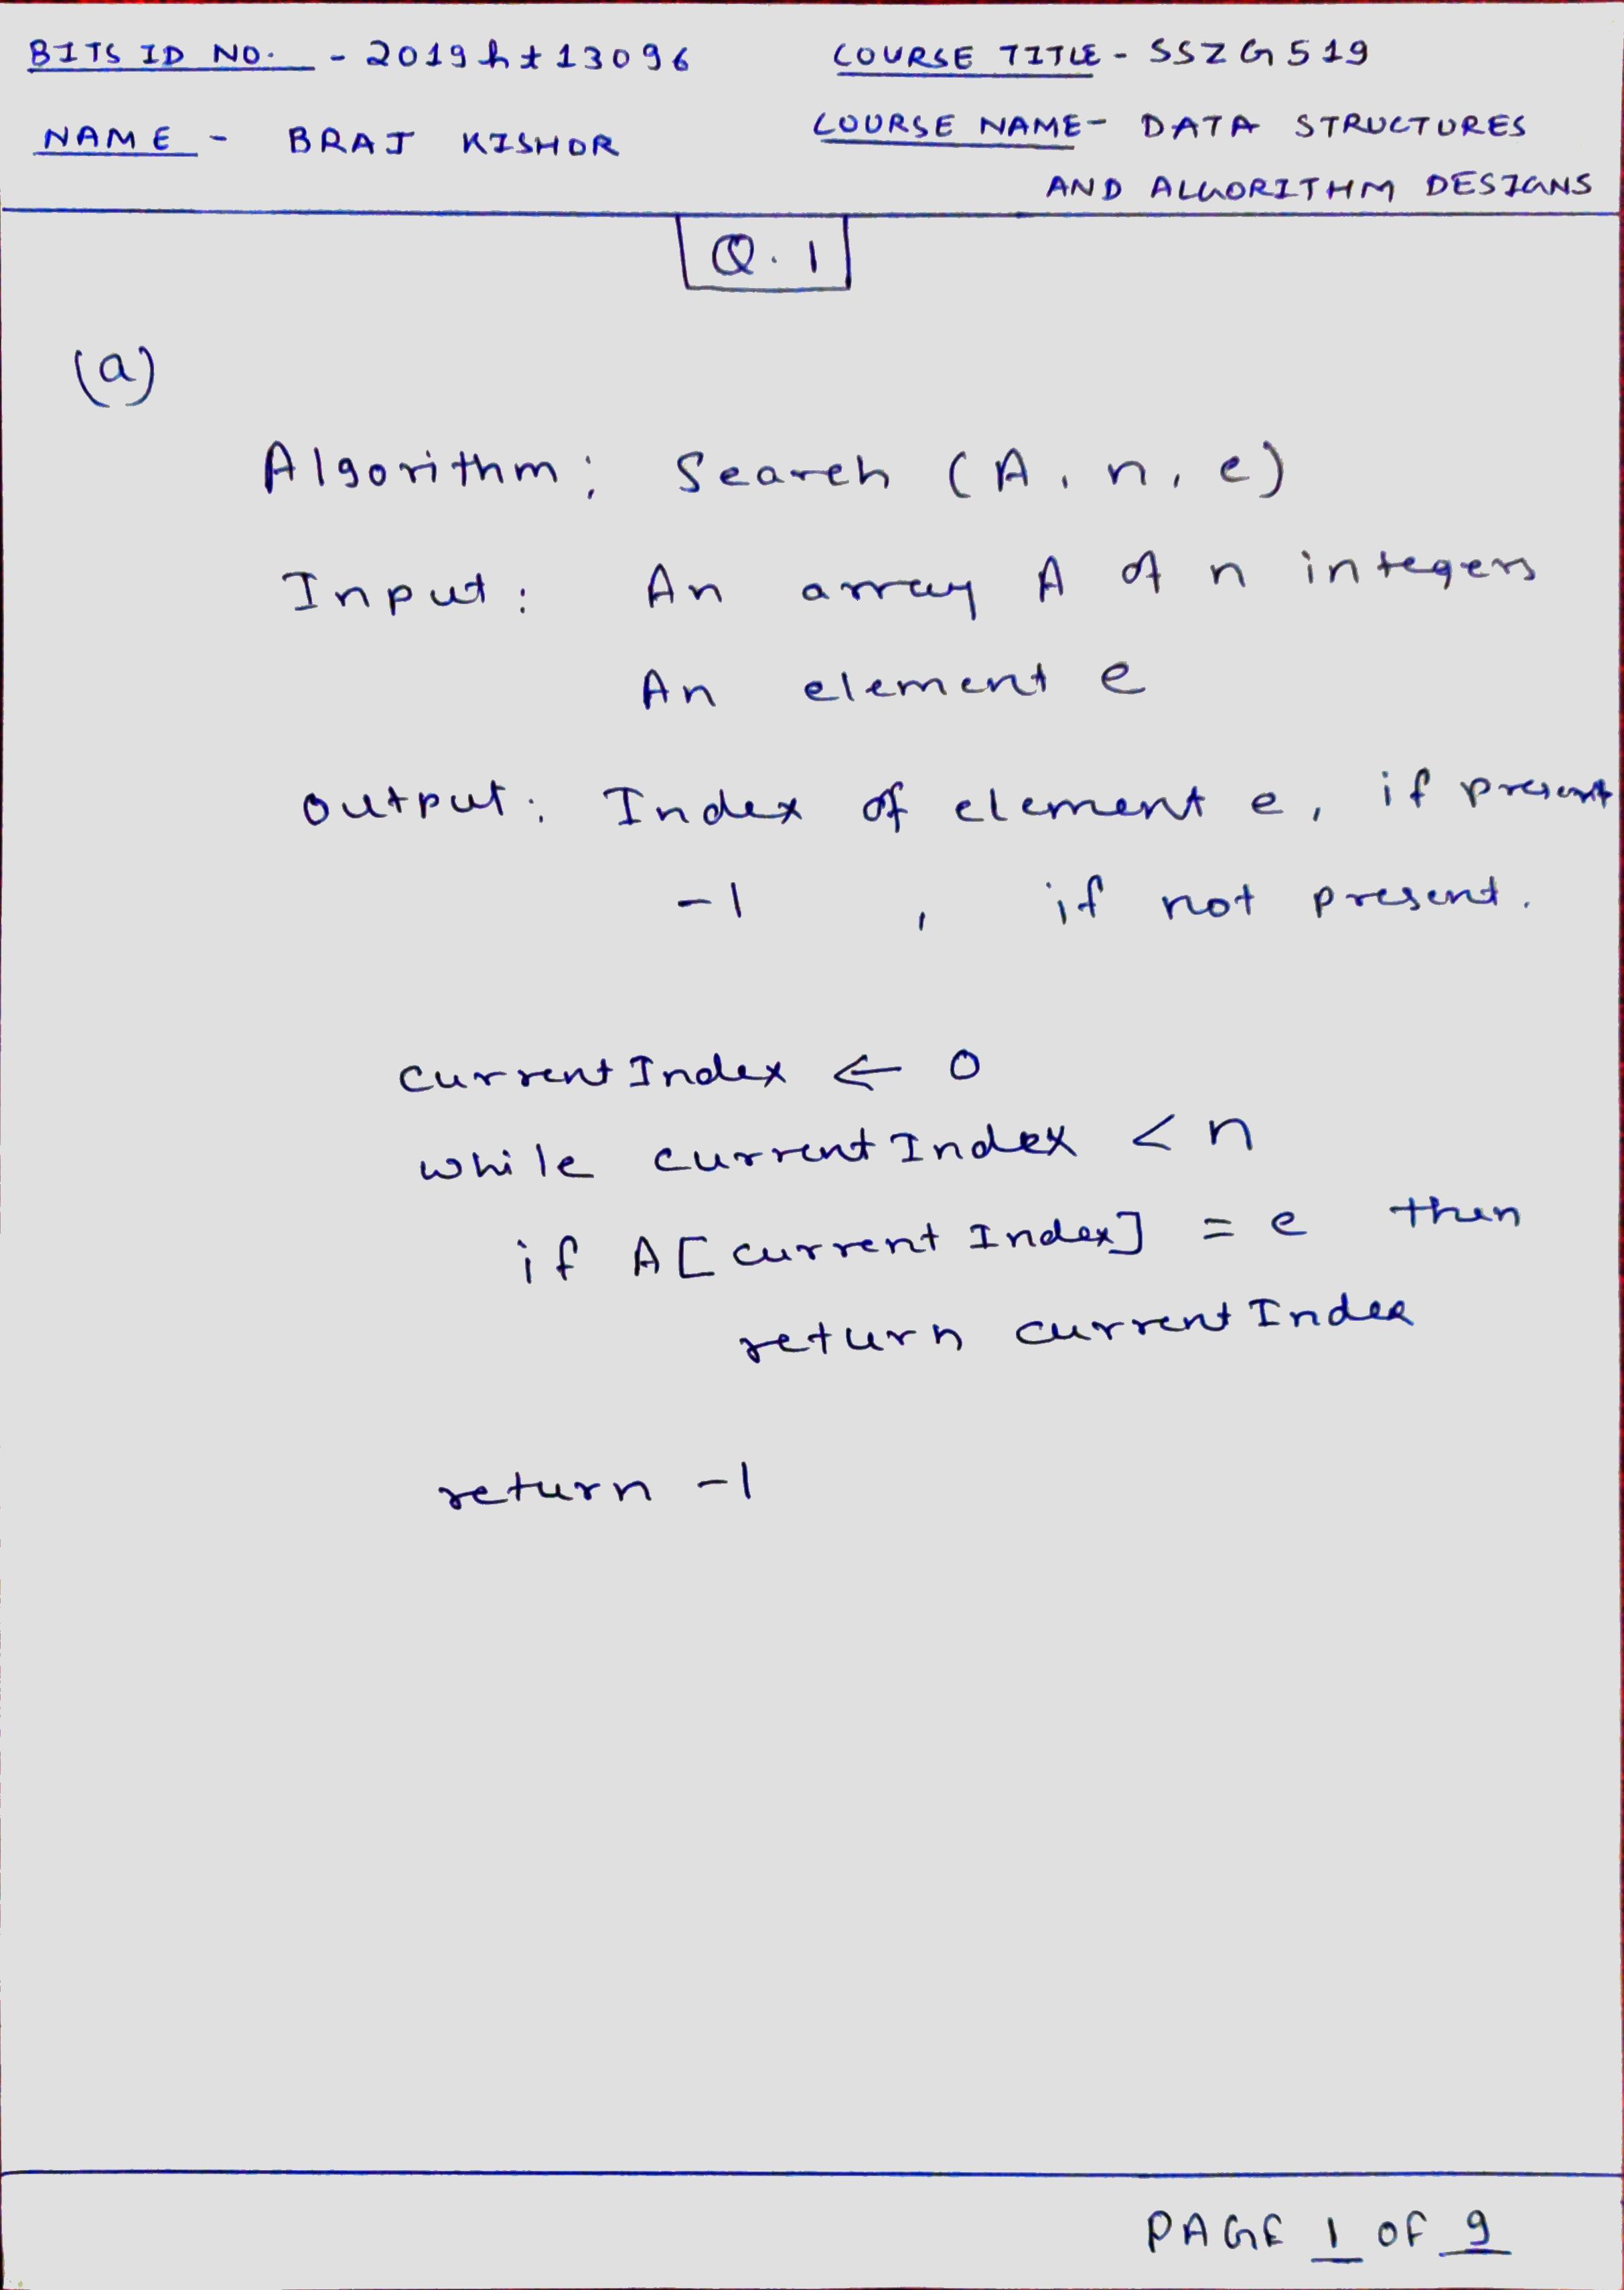 BITS ID NO. - 2019ht13096
COURSE TITLE - SSZG519
NAME - BRAJ KISHOR
COURSE NAME- DATA STRUCTURES
AND ALGORITHM DESIGNS
Q.1
(a)
Algorithm; Search (A, n, e)
Input: An array A of n integers
An element e
Output: Index of element e, if present
-1 , if not present.
currentIndex ← 0
while currentIndex < n
if A[currentIndex] = e then
return currentIndex
return -1
PAGE 1 OF 9